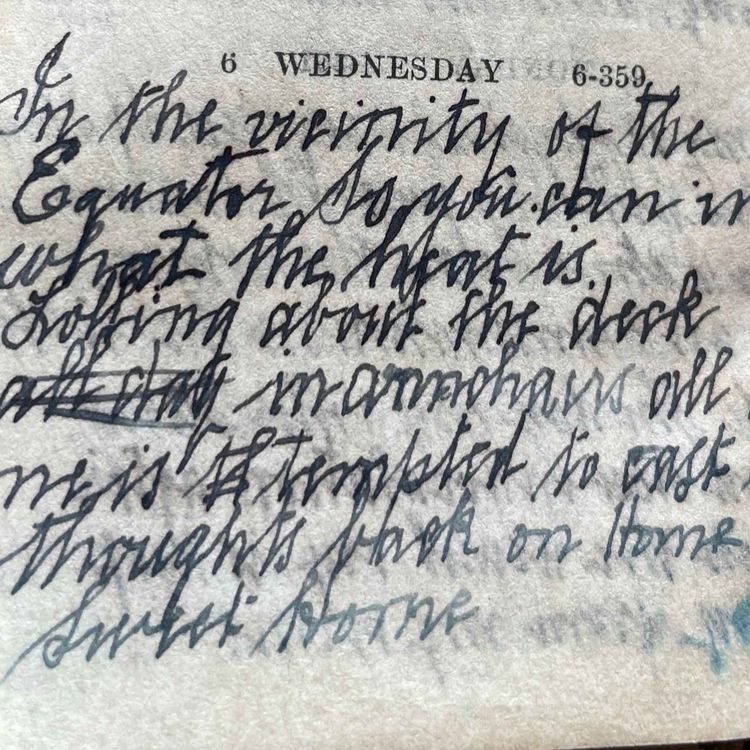 6 WEDNESDAY 6-359
In the vicinity of the
Equator So you can
what the heat is.
Lolling about the deck
all day in armchairs all
ne is tempted to cast
thoughts back on Home
Sweet Home